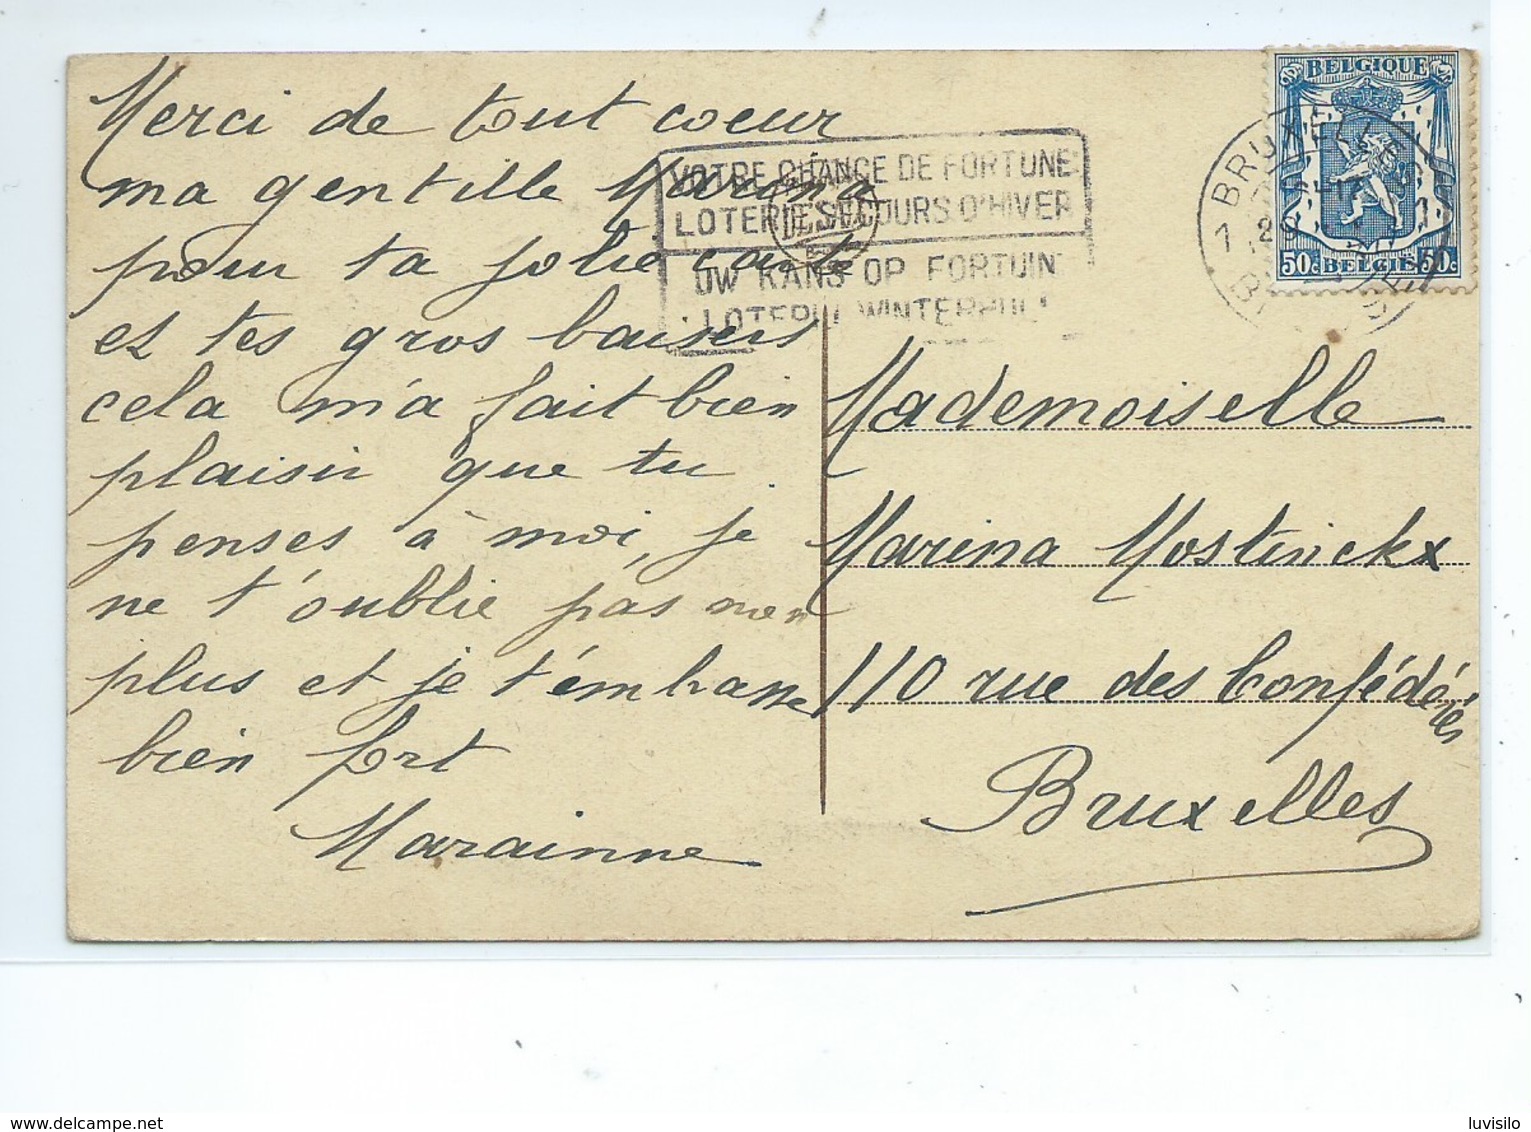 Merci de tout coeur
ma gentille Marina
pour ta jolie carte
et tes gros baisers
cela m'a fait bien
plaisir que tu
penses à moi, je
ne t'oublie pas non
plus et je t'embrasse
bien fort
Marainne
VOTRE CHANCE DE FORTUNE
LOTERIE SECOURS D'HIVER
UW KANS OP FORTUIN
LOTERIJ WINTERHULP
BELGIQUE
50c BELGIË 50c
BRUXELL
1
Mademoiselle
Marina Mostinckx
110 rue des Confédérés
Bruxelles
www.delcampe.net
luvisilo